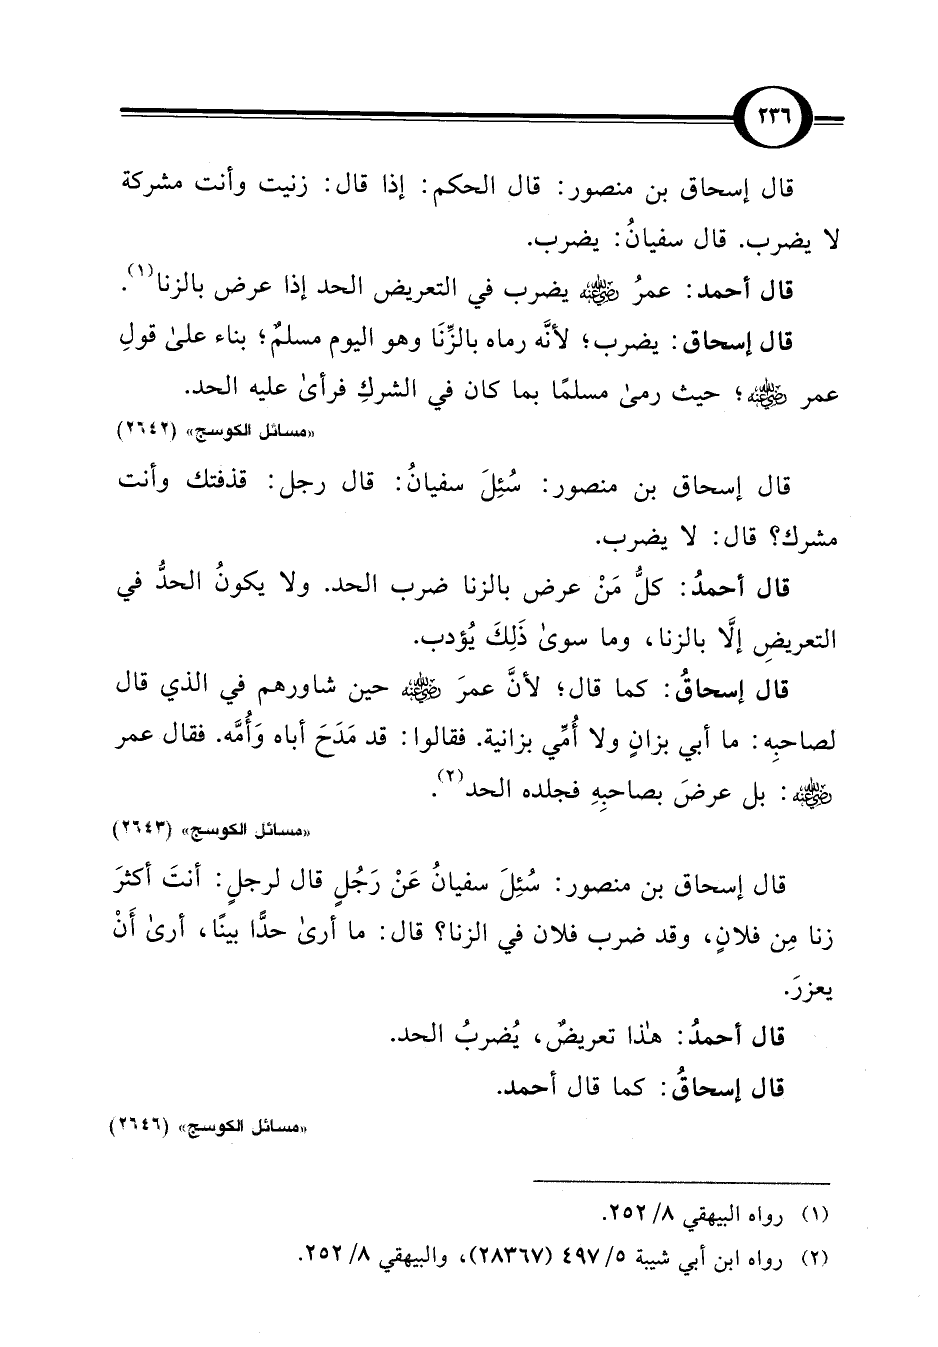 ٢٣٦
قال إسحاق بن منصور: قال الحكم: إذا قال: زنيت وأنت مشركة
لا يضرب. قال سفيانُ: يضرب.
قال أحمد: عمرُ ﷺ يضرب في التعريض الحد إذا عرض بالزنا(١).
قال إسحاق: يضرب؛ لأنَّه رماه بالزِّنَا وهو اليوم مسلمٌ؛ بناء علىٰ قولِ
عمر رضي الله عنه؛ حيث رمىٰ مسلمًا بما كان في الشركِ فرأىٰ عليه الحد.
«مسائل الكوسج» (٢٦٤٢)
قال إسحاق بن منصور: سُئِلَ سفيانُ: قال رجل: قذفتك وأنت
مشرك؟ قال: لا يضرب.
قال أحمدُ: كلُّ مَنْ عرض بالزنا ضرب الحد. ولا يكونُ الحدُّ في
التعريضِ إلَّا بالزنا، وما سوىٰ ذَلِكَ يُؤدب.
قال إسحاقُ: كما قال؛ لأنَّ عمرَ رضي الله عنه حين شاورهم في الذي قال
لصاحبِه: ما أبي بزانٍ ولا أُمِّي بزانية. فقالوا: قد مَدَحَ أباه وَأُمَّه. فقال عمر
رضي الله عنه: بل عرضَ بصاحبِهِ فجلده الحد(٢).
«مسائل الكوسج» (٢٦٤٣)
قال إسحاق بن منصور: سُئِلَ سفيانُ عَنْ رَجُلٍ قال لرجلٍ: أنتَ أكثرَ
زنا مِن فلانٍ، وقد ضرب فلان في الزنا؟ قال: ما أرىٰ حدًّا بينًا، أرىٰ أَنْ
يعزرَ.
قال أحمدُ: هٰذا تعريضٌ، يُضربُ الحد.
قال إسحاقُ: كما قال أحمد.
«مسائل الكوسج» (٢٦٤٦)
(١) رواه البيهقي ٨/ ٢٥٢.
(٢) رواه ابن أبي شيبة ٥/ ٤٩٧ (٢٨٣٦٧)، والبيهقي ٨/ ٢٥٢.